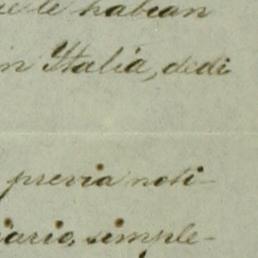 le habian
n Italia, dedi
previa noti-
iario, simple-